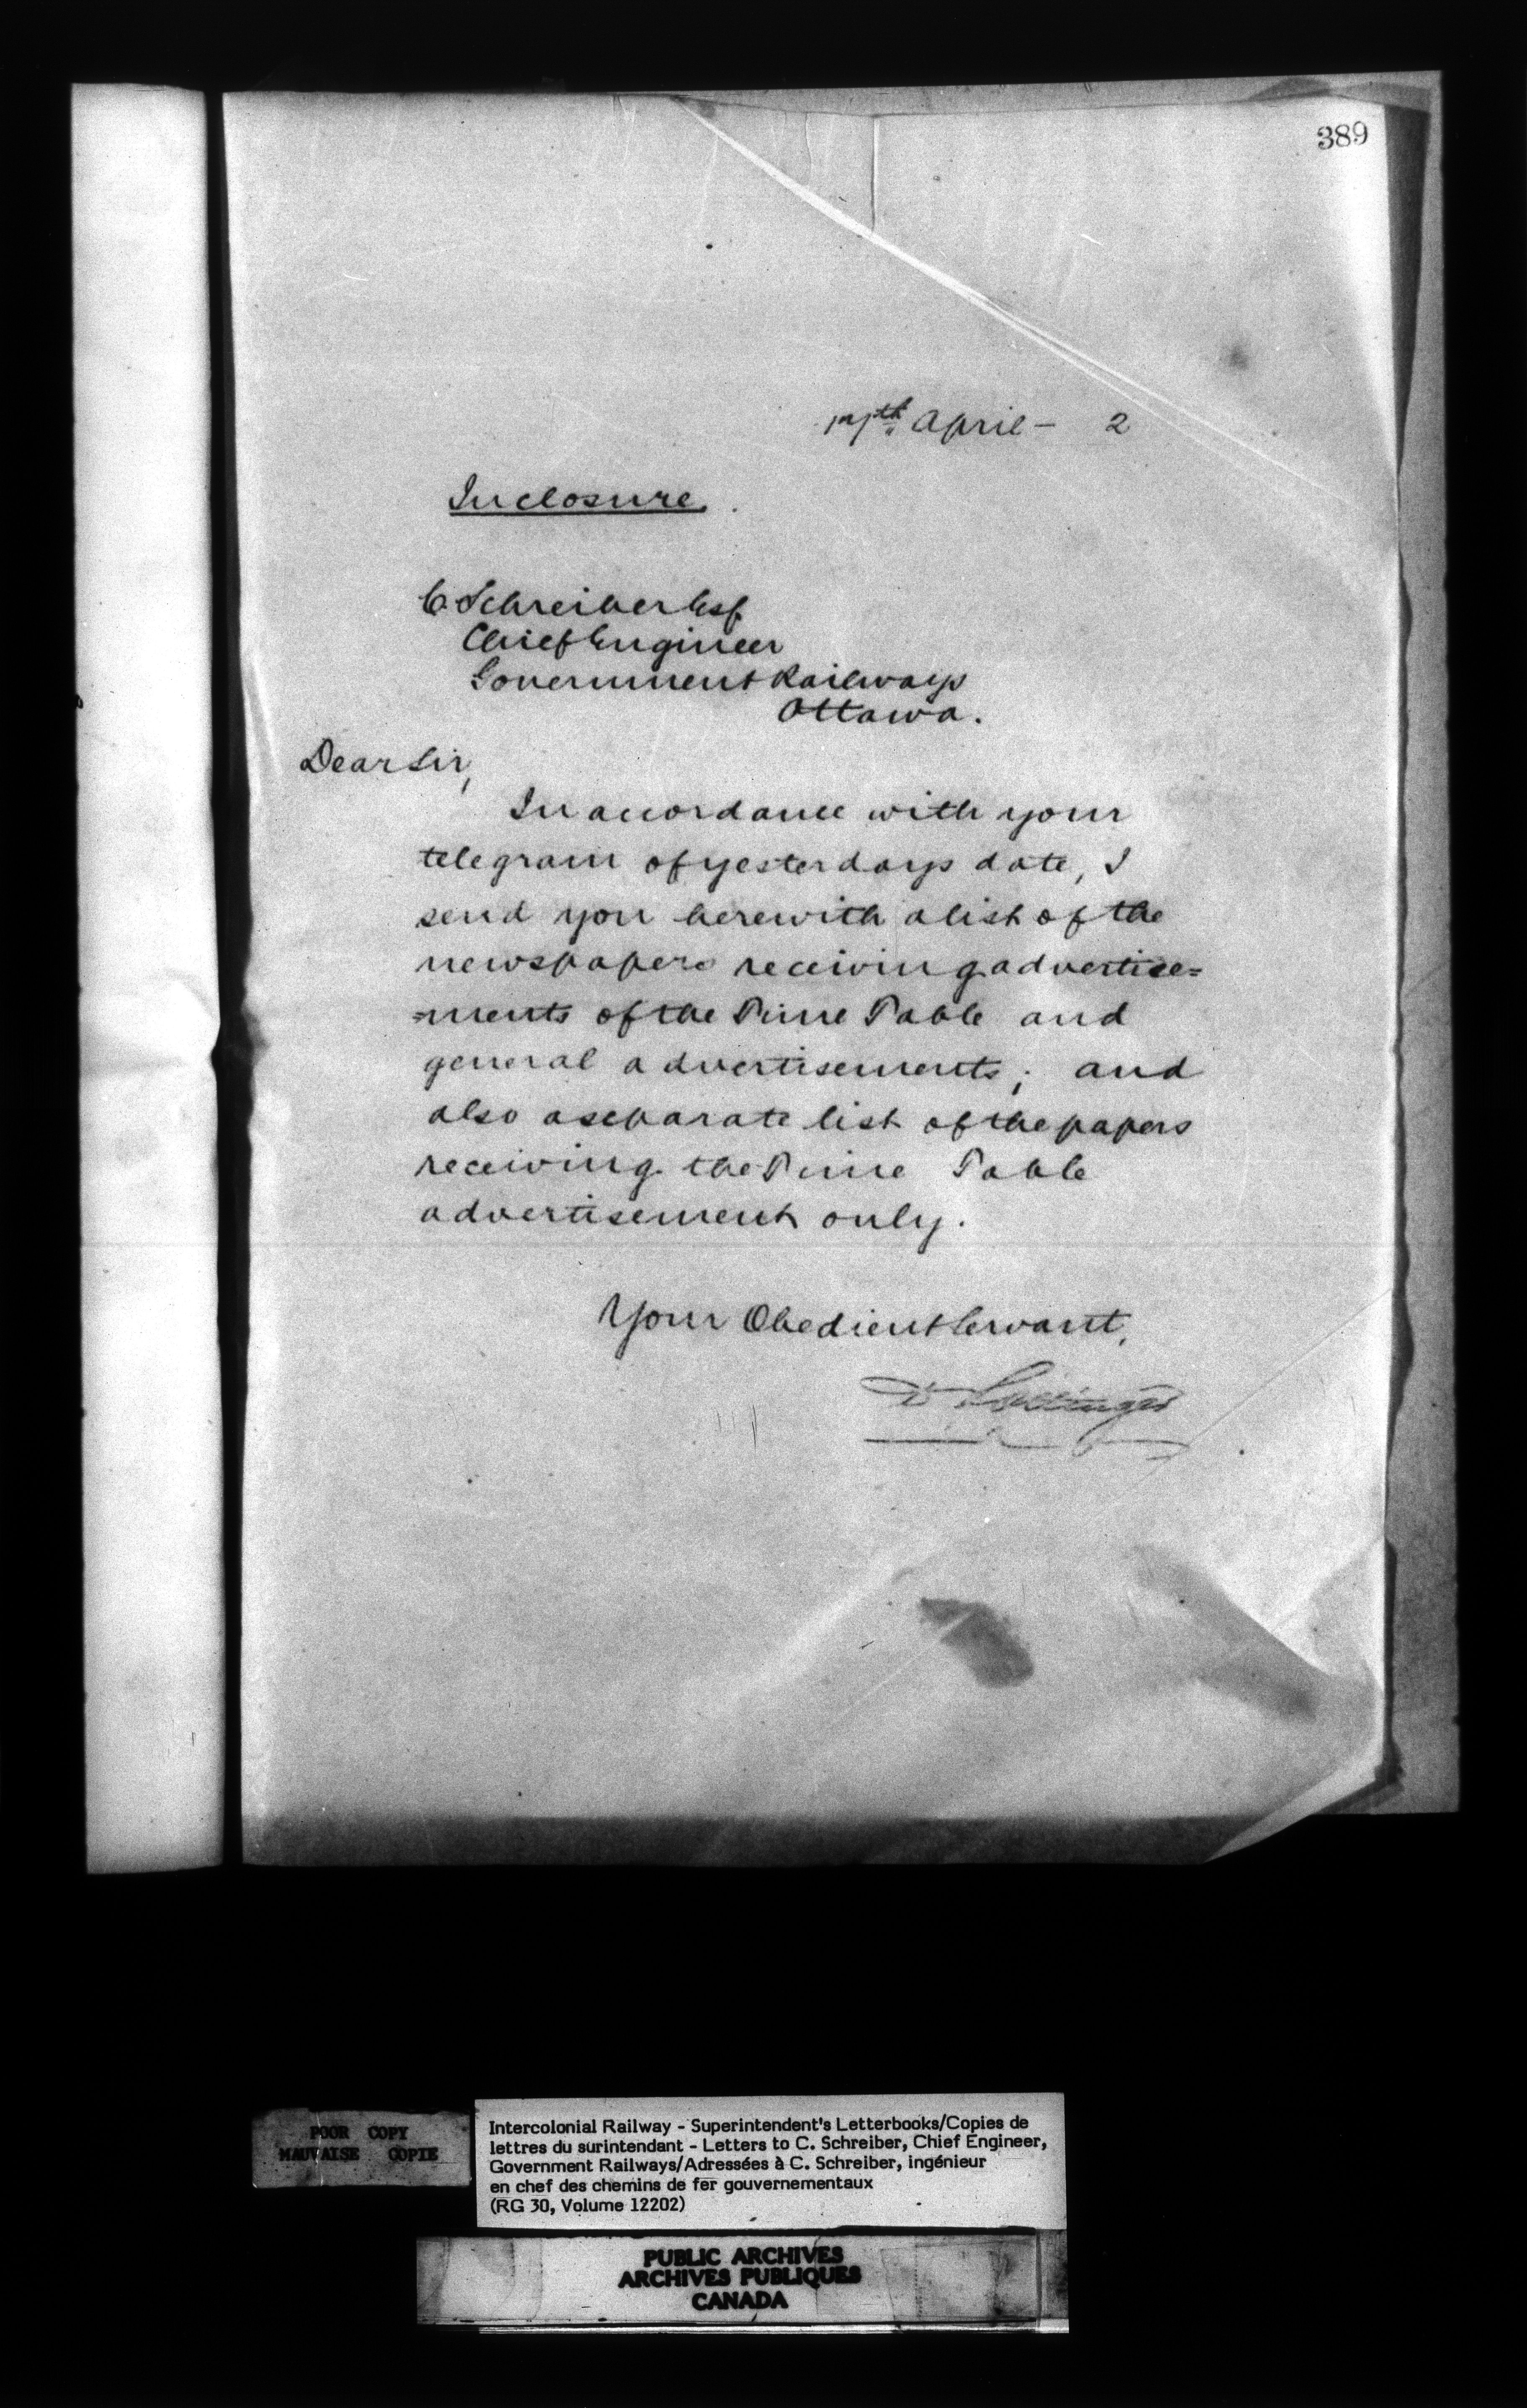 389
17th April - 2
Inclosure.
C Schreiber Esq
Chief Engineer
Government Railways
Ottawa.
Dear Sir,
In accordance with your
telegram of yesterdays date, I
send you herewith a list of the
newspapers receiving advertise=
=ments of the Time Table and
general advertisements; and
also a separate list of the papers
receiving the Time Table
advertisement only.
Your Obedient Servant,
D Pottinger
POOR COPY
MAUVAISE COPIE
Intercolonial Railway - Superintendent's Letterbooks/Copies de
lettres du surintendant - Letters to C. Schreiber, Chief Engineer,
Government Railways/Adressées à C. Schreiber, ingénieur
en chef des chemins de fer gouvernementaux
(RG 30, Volume 12202)
PUBLIC ARCHIVES
ARCHIVES PUBLIQUES
CANADA